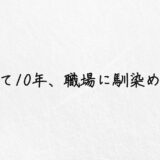 て10年、職場に馴染め